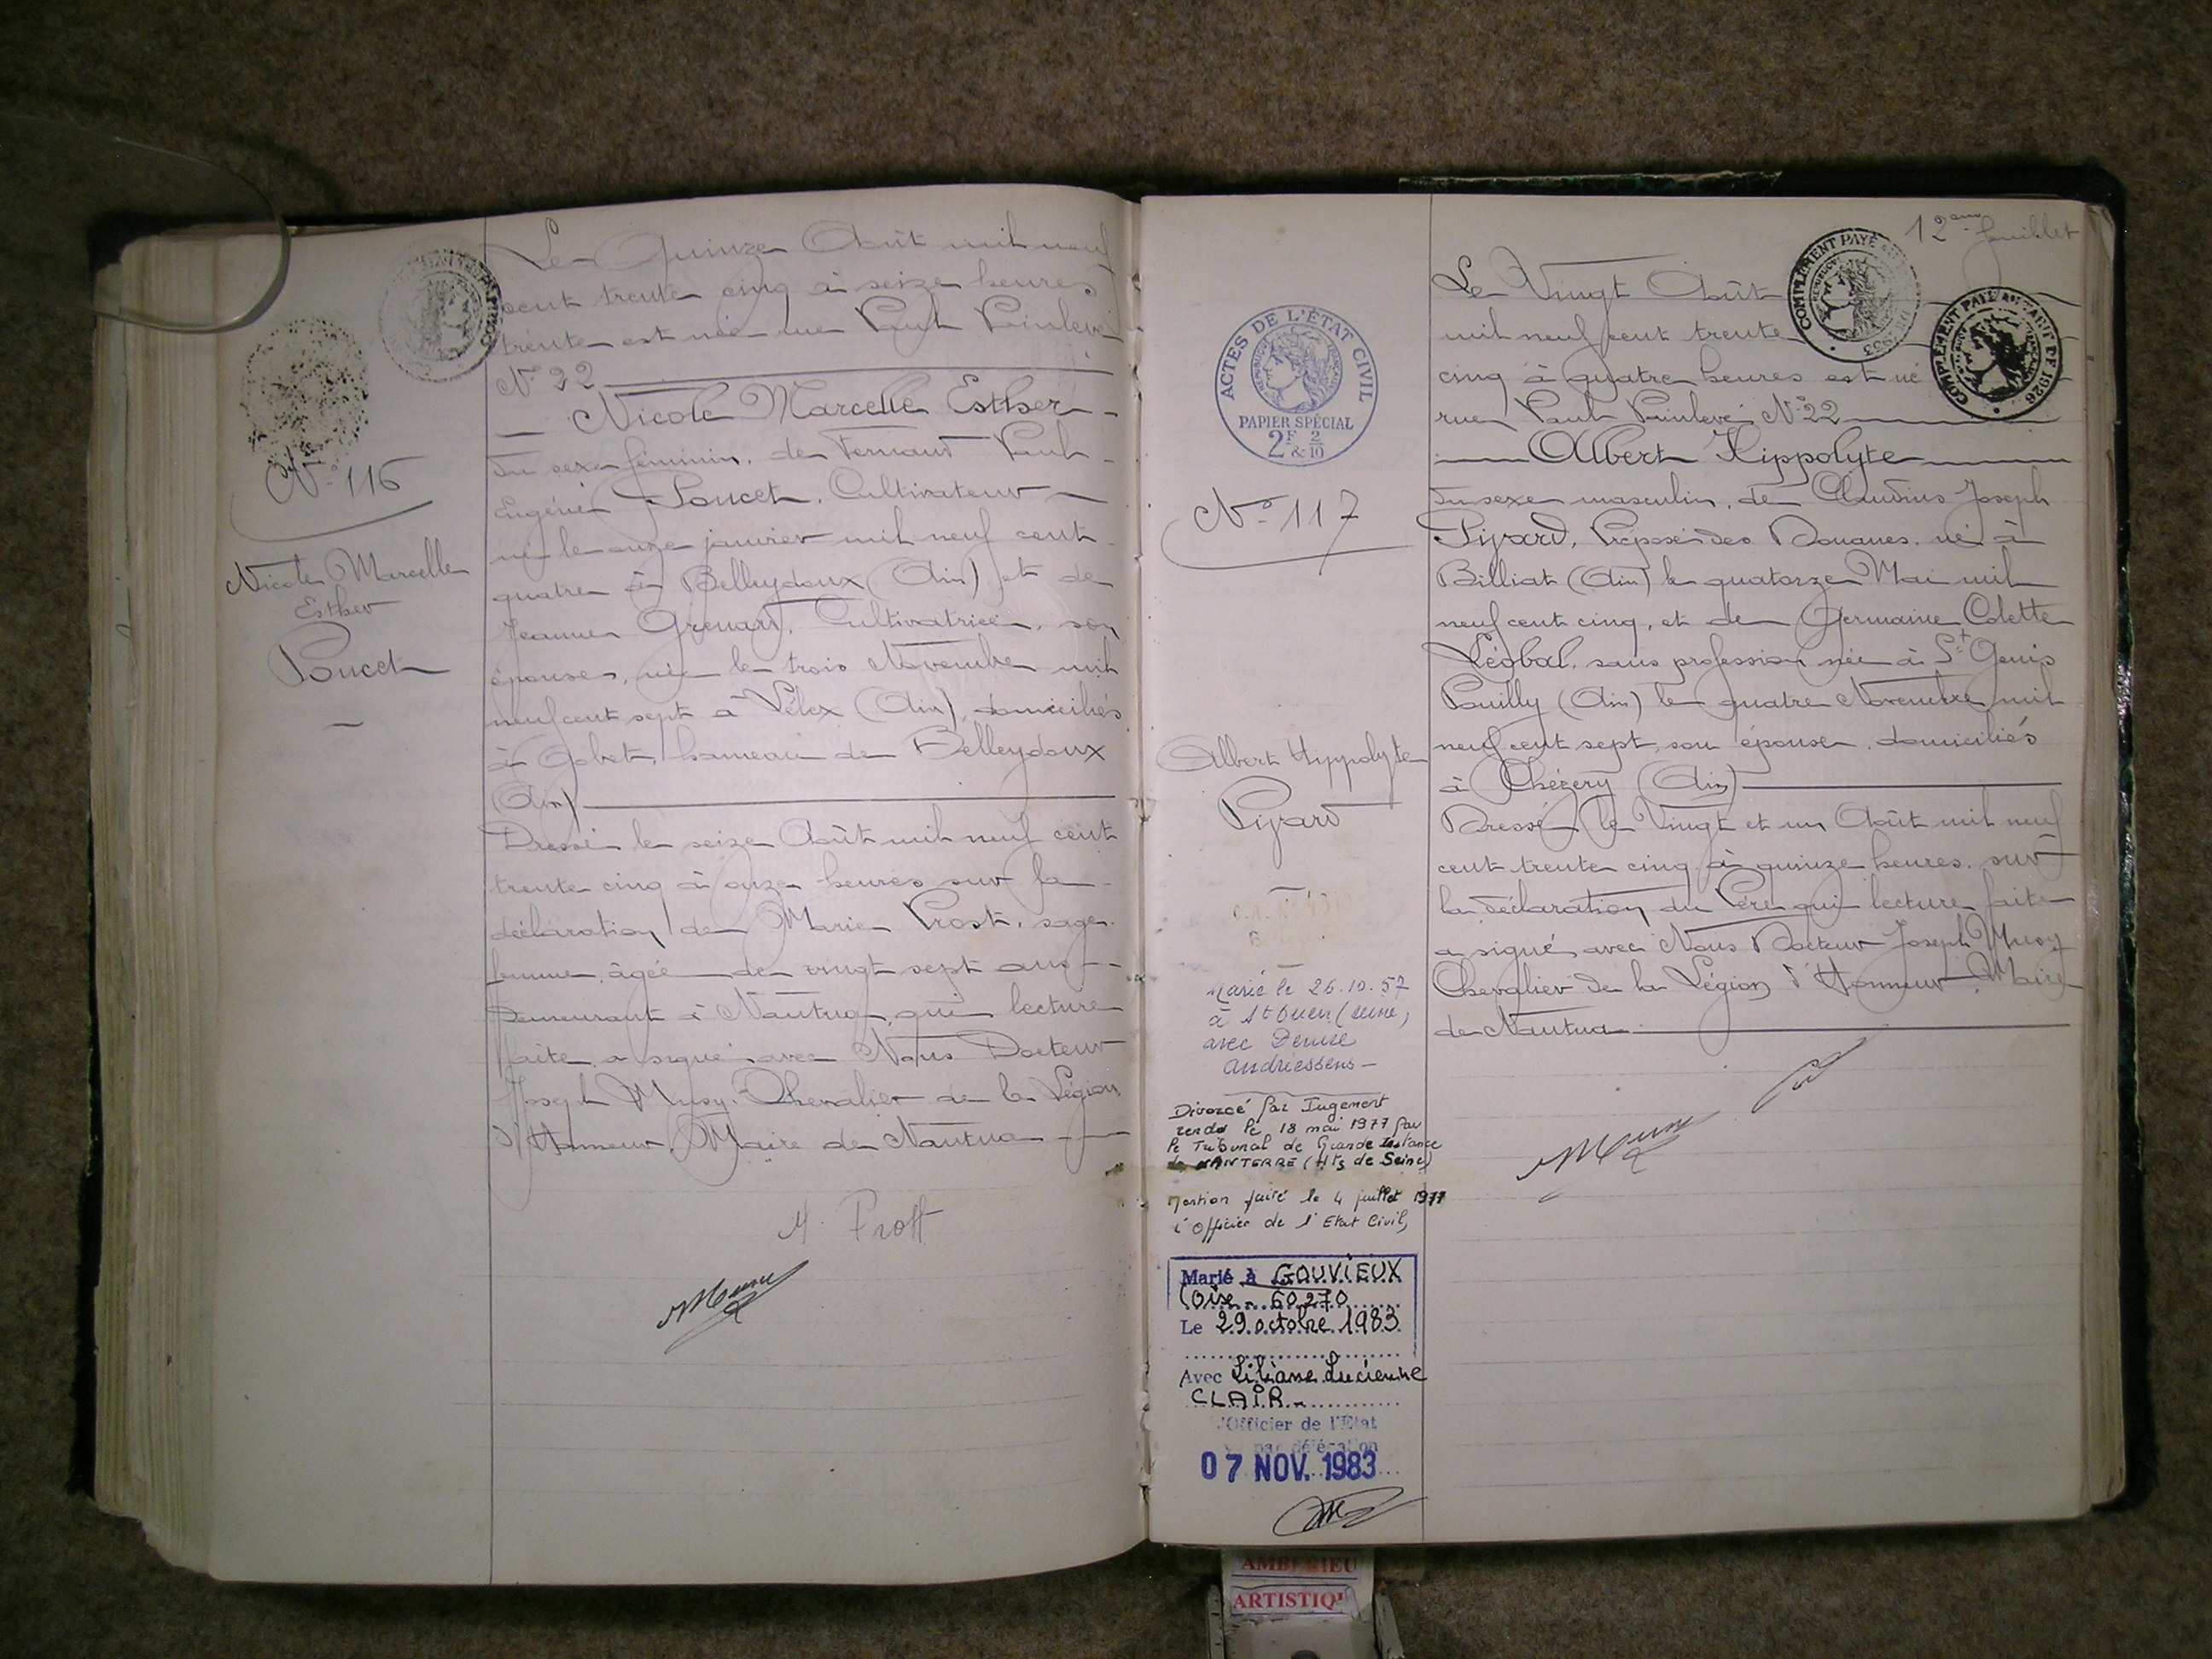 Le Quinze Août mil neuf
cent trente cinq à seize heures
trente est née rue Paul Painlevé
N° 22
Nicole Marcelle Esther
du sexe féminin, de Fernand Paul
Eugène Poncet, Cultivateur
né le onze janvier mil neuf cent
quatre à Belleydoux (Ain) et de
Jeanne Grenard, Cultivatrice, son
épouse, née le trois Novembre mil
neuf cent sept à Vélex (Ain), domiciliés
à Gobet, hameau de Belleydoux
(Ain)
Dressé le seize Août mil neuf cent
trente cinq à onze heures sur la
déclaration de Marie Prost, sage
femme, âgée de vingt sept ans
demeurant à Nantua, qui lecture
faite a signé avec Nous Docteur
Joseph Musy, Chevalier de la Légion
d'Honneur, Maire de Nantua
M. Prost
N° 116
Nicole Marcelle
Esther
Poncet
12ème feuillet
COMPLÉMENT PAYÉ
COMPLÉMENT PAYÉ 1926
ACTES DE L'ÉTAT CIVIL
PAPIER SPÉCIAL
2F & 2/10
N° 117
Albert Hippolyte
Pivard
Marié le 26.10.57
à St Ouen (Seine)
avec Denise
Andriessens
Divorcé par Jugement
rendu le 18 mai 1977 par
le Tribunal de Grande Instance
de NANTERRE (Hts de Seine)
Mention faite le 4 juillet 1977
l'Officier de l'Etat Civil,
Marié à GOUVIEUX
(Oise - 60270
Le 29 octobre 1983
Avec Liliane Lucienne
CLAIR
l'Officier de l'Etat
par délégation
07 NOV. 1983
Le Vingt Août
mil neuf cent trente
cinq à quatre heures est né
rue Paul Painlevé N° 22
Albert Hippolyte
du sexe masculin, de Claudius Joseph
Pivard, Préposé des Douanes, né à
Billiat (Ain) le quatorze Mai mil
neuf cent cinq, et de Germaine Colette
Léobal, sans profession née à St Genis
Pouilly (Ain) le quatre Novembre mil
neuf cent sept, son épouse, domiciliés
à Chézery (Ain)
Dressé le Vingt et un Août mil neuf
cent trente cinq à quinze heures, sur
la déclaration du Père qui lecture faite
a signé avec Nous Docteur Joseph Musy
Chevalier de la Légion d'Honneur, Maire
de Nantua
AMBERIEU
ARTISTIQ